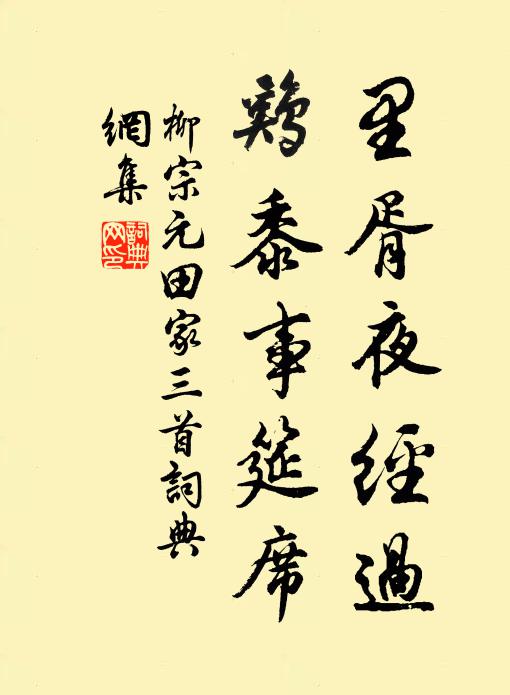 里胥夜經過
鷄黍事筵席
柳宗元田家三首詞典
網集
詞典
網印